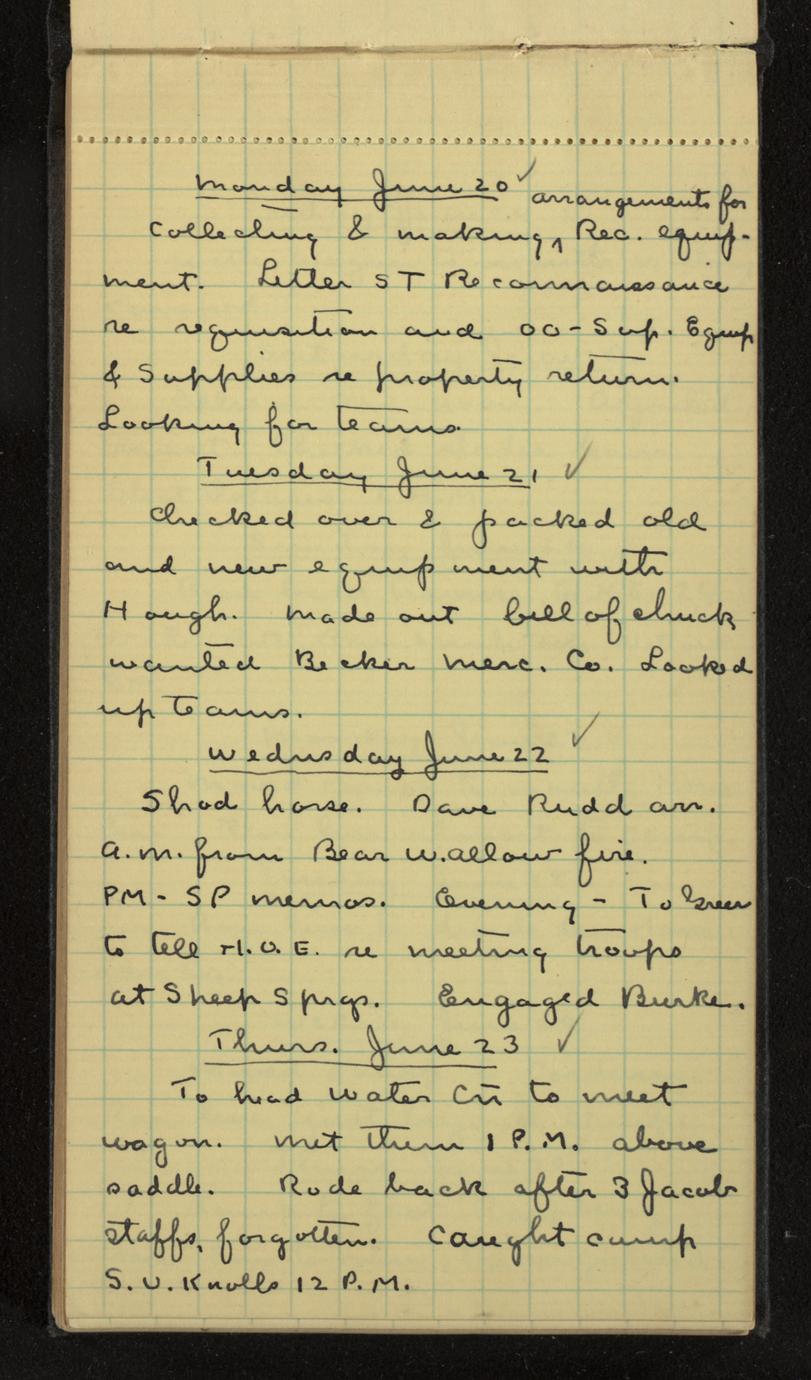 Monday June 20 ✓ arrangements for
Collecting & making, Rec. equip-
ment. Letter ST Reconnaissance
re requisition and OO - Sup. Equip
& Supplies re property return.
Looking for teams.
Tuesday June 21 ✓
Checked over & packed old
and new equipment with
Hough. Made out bill of chuck
wanted Becker Merc. Co. Looked
up teams.
Wednsday June 22 ✓
Shod horse. Dave Rudd arr.
a.m. from Bear Wallow fire.
PM - SP memos. Evening - To Greer
to tell H.O.E. re meeting troops
at Sheep Sprgs. Engaged Burke.
Thurs. June 23 ✓
To head Water Cñ to meet
wagon. Met them 1 P.M. above
saddle. Rode back after 3 Jacob
staffs, forgotten. Caught camp
S.U. Knolls 12 P.M.